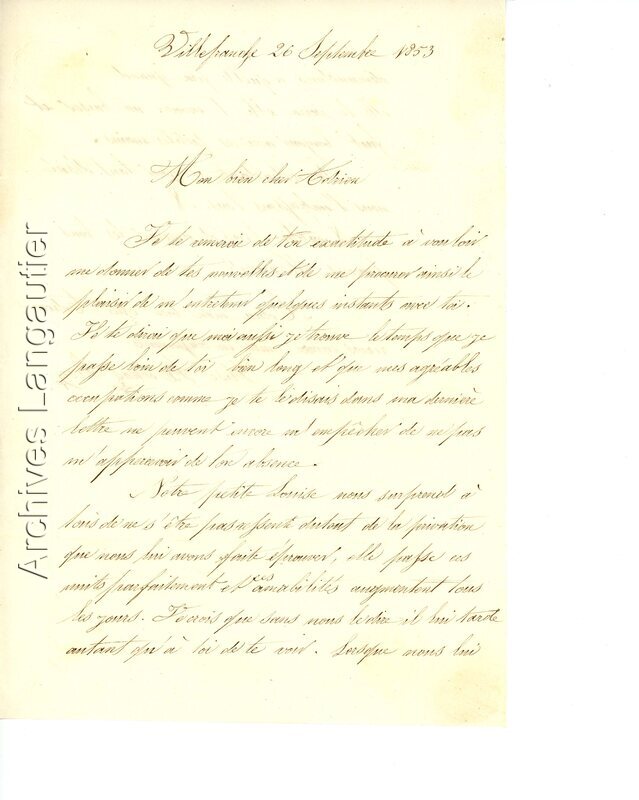 Villefranche 26 Septembre 1853
Mon bien cher Adrien
Je te remercie de ton exactitude à vouloir
me donner de tes nouvelles et de me procurer ainsi le
plaisir de m'entretenir quelques instants avec toi.
Je te dirai que moi aussi je trouve le temps que je
passe loin de toi bien long et que mes agréables
occupations comme je te le disais dans ma dernière
lettre ne peuvent encore m'empêcher de ne pas
m'appercevoir de ton absence.
Notre petite Louise nous surprend à
tous de ne s'être pas ressenti du tout de la privation
que nous lui avons faite éprouver, elle passe ces
nuits parfaitement et ces amabilités augmentent tous
les jours. Je crois que sans nous le dire il lui tarde
autant qu'à toi de te voir. Lorsque nous lui
Archives Langautier